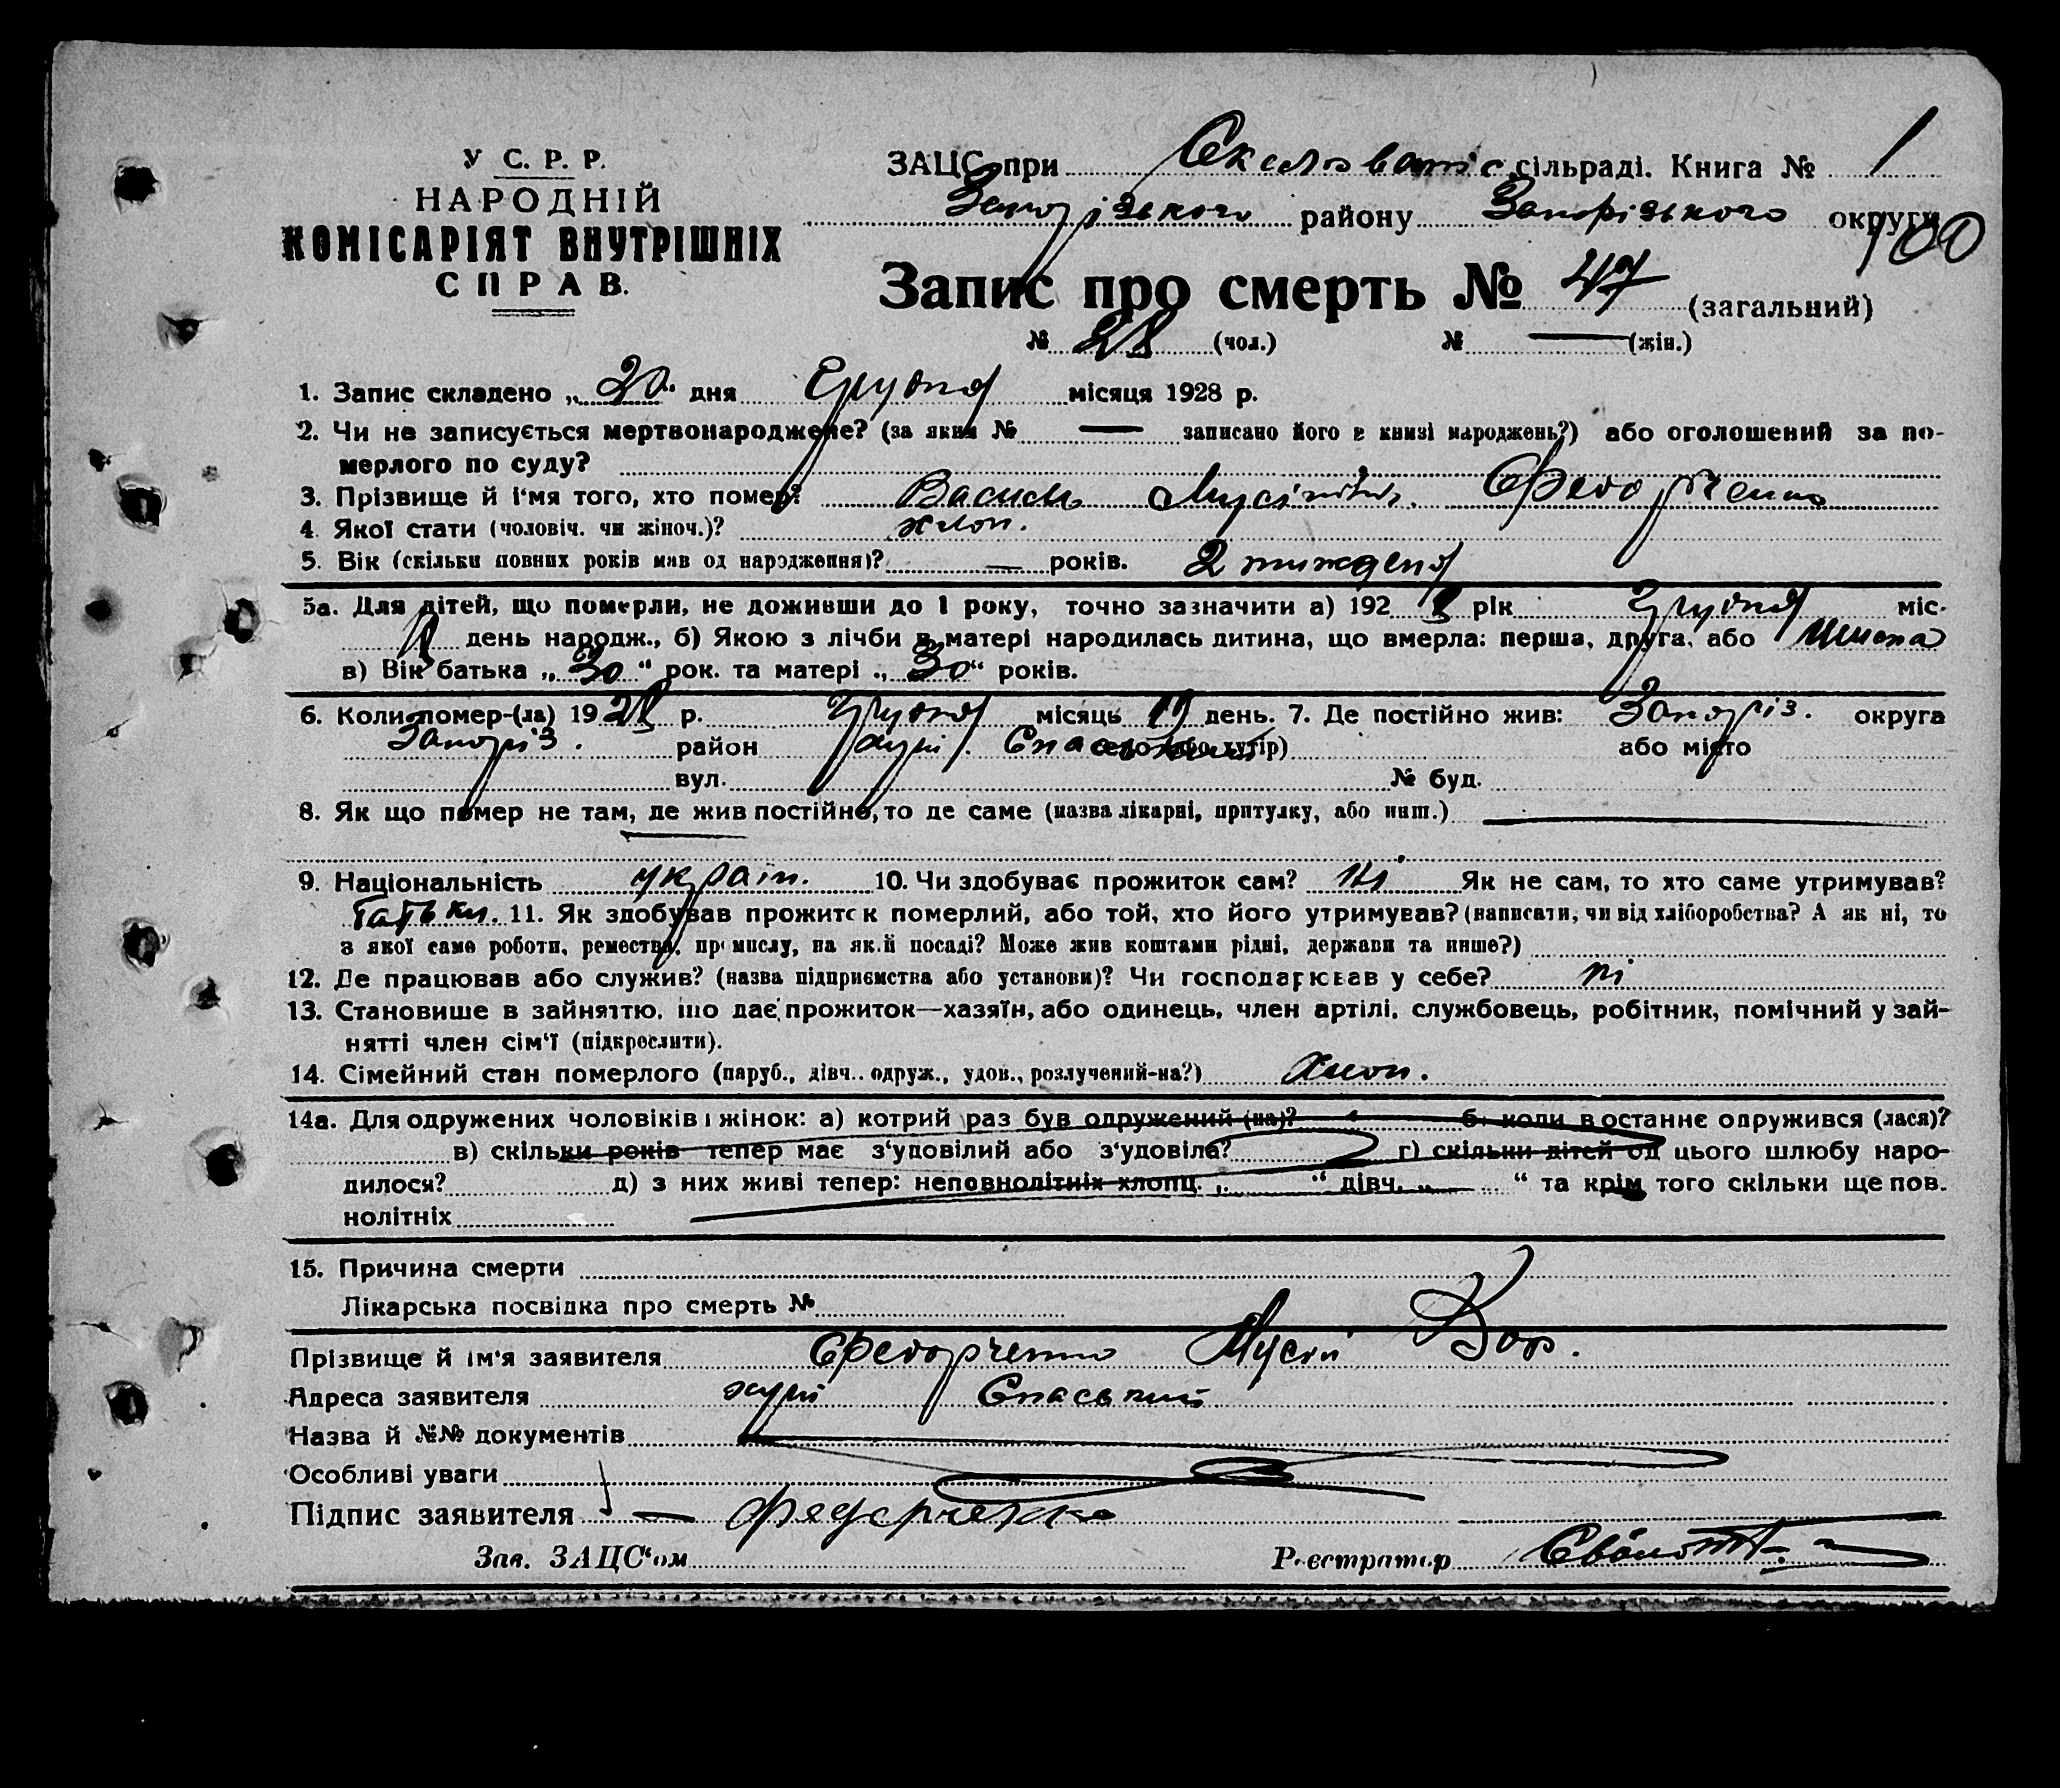 У С. Р. Р.
НАРОДНІЙ
КОМІСАРІЯТ ВНУТРІШНІХ
СПРАВ.
ЗАЦС при сільраді. Книга № 1
Запорізького району Запорізького округи
100
Запис про смерть № 47 (загальний)
№ 28 (чол.) № — (жін.)
1. Запис складено „20“ дня Грудня місяця 1928 р.
2. Чи не записується мертвонароджене? (за яким № — записано його в книзі народжень?) або оголошений за по-
мерлого по суду?
3. Прізвище й ім‘я того, хто помер? Василь Мусієвич Федорченко
4. Якої стати (чоловіч. чи жіноч.)? хлоп.
5. Вік (скільки повних років мав од народження)? — років. 2 тижденя
5а. Для дітей, що померли, не доживши до 1 року, точно зазначити а) 1928 рік Грудня міс.
день народж., б) Якою з лічби в матері народилась дитина, що вмерла: перша, друга, або шоста
в) Вік батька „30“ рок. та матері „30“ років.
6. Коли помер-(ла) 1928 р. Грудня місяць 19 день. 7. Де постійно жив: Запоріз. округа
Запоріз. район хут. Спаський село (або хутір) або місто
вул. № буд.
8. Як що помер не там, де жив постійно, то де саме (назва лікарні, притулку, або инш.) —
9. Національність україн. 10. Чи здобуває прожиток сам? ні Як не сам, то хто саме утримував?
Батьки. 11. Як здобував прожиток померлий, або той, хто його утримував? (написати, чи від хліборобства? А як ні, то
з якої саме роботи, ремества, промислу, на якій посаді? Може жив коштами рідні, держави та инше?)
12. Де працював або служив? (назва підприємства або установи)? Чи господарював у себе? ні
13. Становище в зайняттю, що дає прожиток—хазяїн, або одинець, член артілі, службовець, робітник, помічний у зай-
нятті член сім‘ї (підкреслити).
14. Сімейний стан померлого (паруб., дівч.. одруж., удов., розлучений-на?) Хлоп.
14а. Для одружених чоловіків і жінок: а) котрий раз був одружений (на)? б) коли в останнє одружився (лася)?
в) скільки років тепер має з‘удовілий або з‘удовіла? г) скільки дітей од цього шлюбу наро-
дилося? д) з них живі тепер: неповнолітніх хлопц. „ “ дівч. „ “ та крім того скільки ще пов.
нолітніх
15. Причина смерти
Лікарська посвідка про смерть №
Прізвище й ім‘я заявителя Федорченко Мусій
Адреса заявителя хут Спаський
Назва й №№ документів
Особливі уваги
Підпис заявителя — Федорченко
Зав. ЗАЦС‘ом Реєстратор